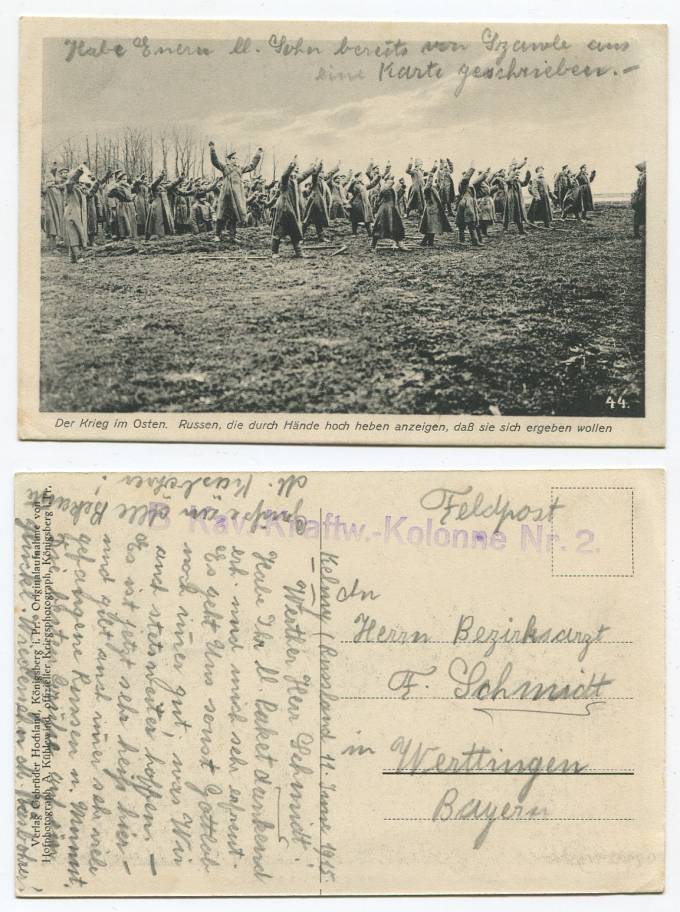 Habe Euern ll. Sohn bereits von Szawle aus
eine Karte geschrieben.-
44.
Der Krieg im Osten. Russen, die durch Hände hoch heben anzeigen, daß sie sich ergeben wollen
Feldpost
B Kav.-Kraftw.-Kolonne Nr. 2.
An
Herrn Bezirksarzt
F. Schmidt
in Werttingen
Bayern
Kelmy / Russland 11. Juni 1915.
Werther Herr Schmidt!
Habe Ihr ll. Paket dankend
erh. und mich sehr erfreut.
Es geht Uns sonst Gottlob
noch imer gut, was Wir
auch stets weiter hoffen.-
Es ist jetzt sehr heiß hier-
und gibt auch imer sehr viele
gefangene Russen u.
Die besten Grüße
Wiedersehn
Grüße an alle
Verlag Gebrüder Hochland, Königsberg i. Pr. Originalaufnahme von
Hofphotograph A. Kühlewindt, offizieller Kriegsphotograph, Königsberg i. Pr.